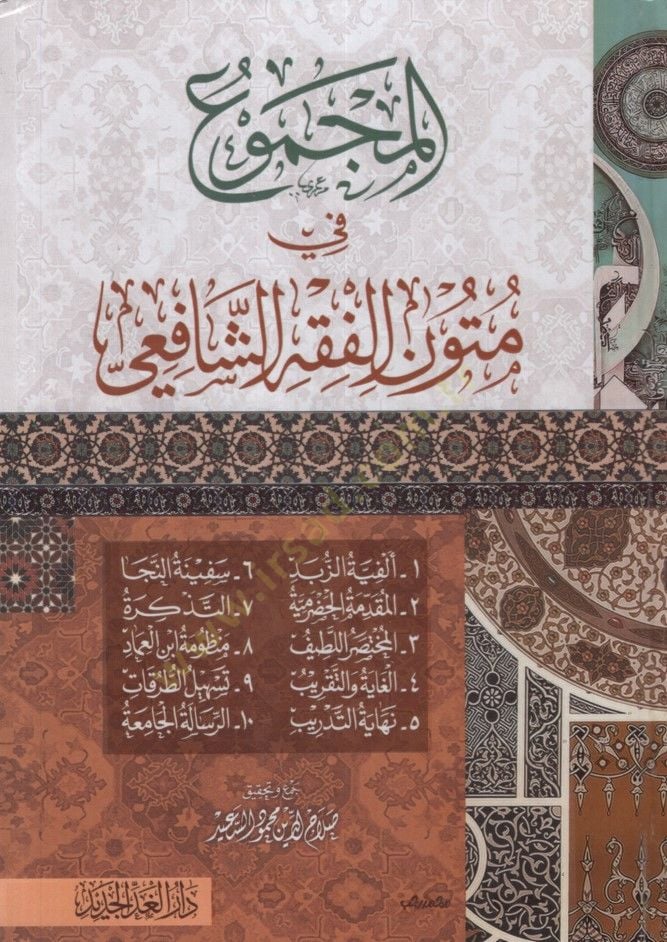 المجَمُوع
فِي
مُتُونِ الفِقْهِ الشَّافِعِيِّ
١ـ ألفية الزبد
٢ـ المقدمة الحضرمية
٣ـ المختصر اللطيف
٤ـ الغاية والتقريب
٥ـ نهاية التدريب
٦ـ سفينة النجا
٧ـ التذكرة
٨ـ منظومة ابن العماد
٩ـ تسهيل الطرقات
١٠ـ الرسالة الجامعة
جمع وتحقيق
صلاح الدين محمود السعيد
دار الغد الجديد